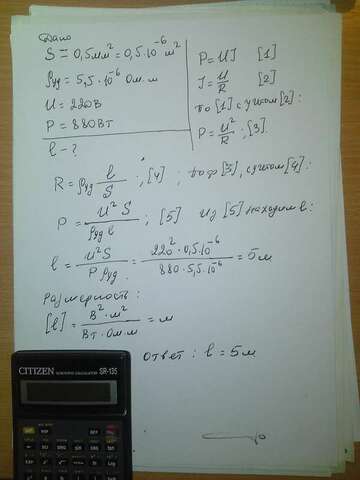 Дано
S = 0,5мм² = 0,5·10⁻⁶ м²
ρуд = 5,5·10⁻⁶ Ом·м
U = 220В
P = 880Вт
l - ?
P = UJ [1]
J = U/R [2]
По [1] с учётом [2]:
P = U²/R ; [3].
R = ρуд l/S ; [4] ; по ф [3], с учётом [4]:
P = U²S/ρуд l ; [5] Из [5] находим l:
l = U²S/P ρуд = 220²·0,5·10⁻⁶/880·5,5·10⁻⁶ = 5м
Размерность:
[l] = В²·м²/Вт·Ом·м = м
Ответ: l = 5м
CITIZEN
SCIENTIFIC CALCULATOR SR-135